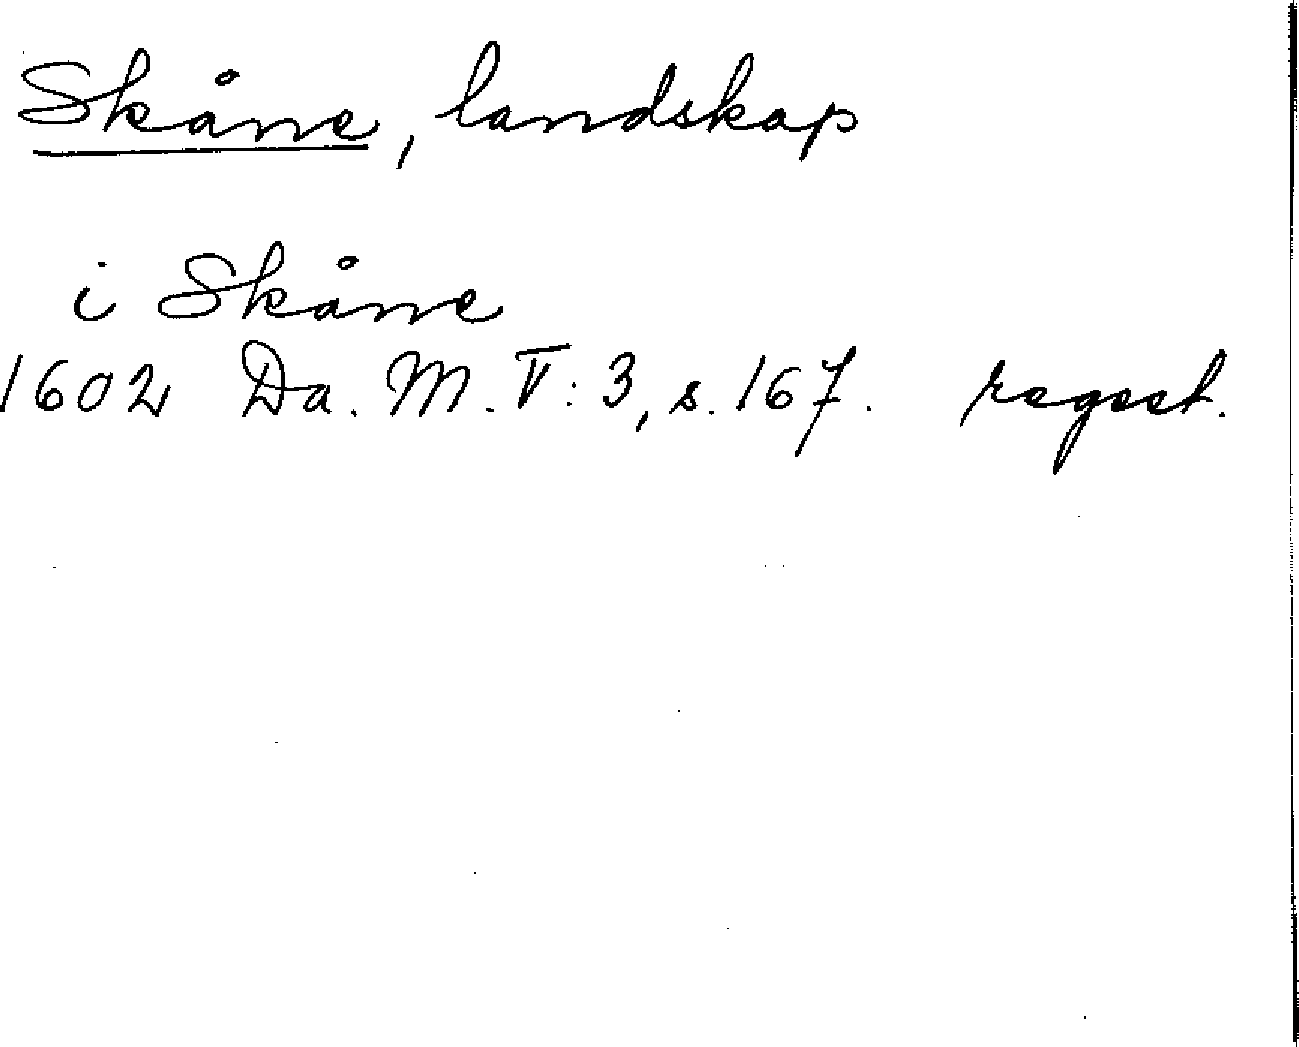 Skåne, landskap
i Skåne
1602 Da. M. V: 3, s. 167. regest.